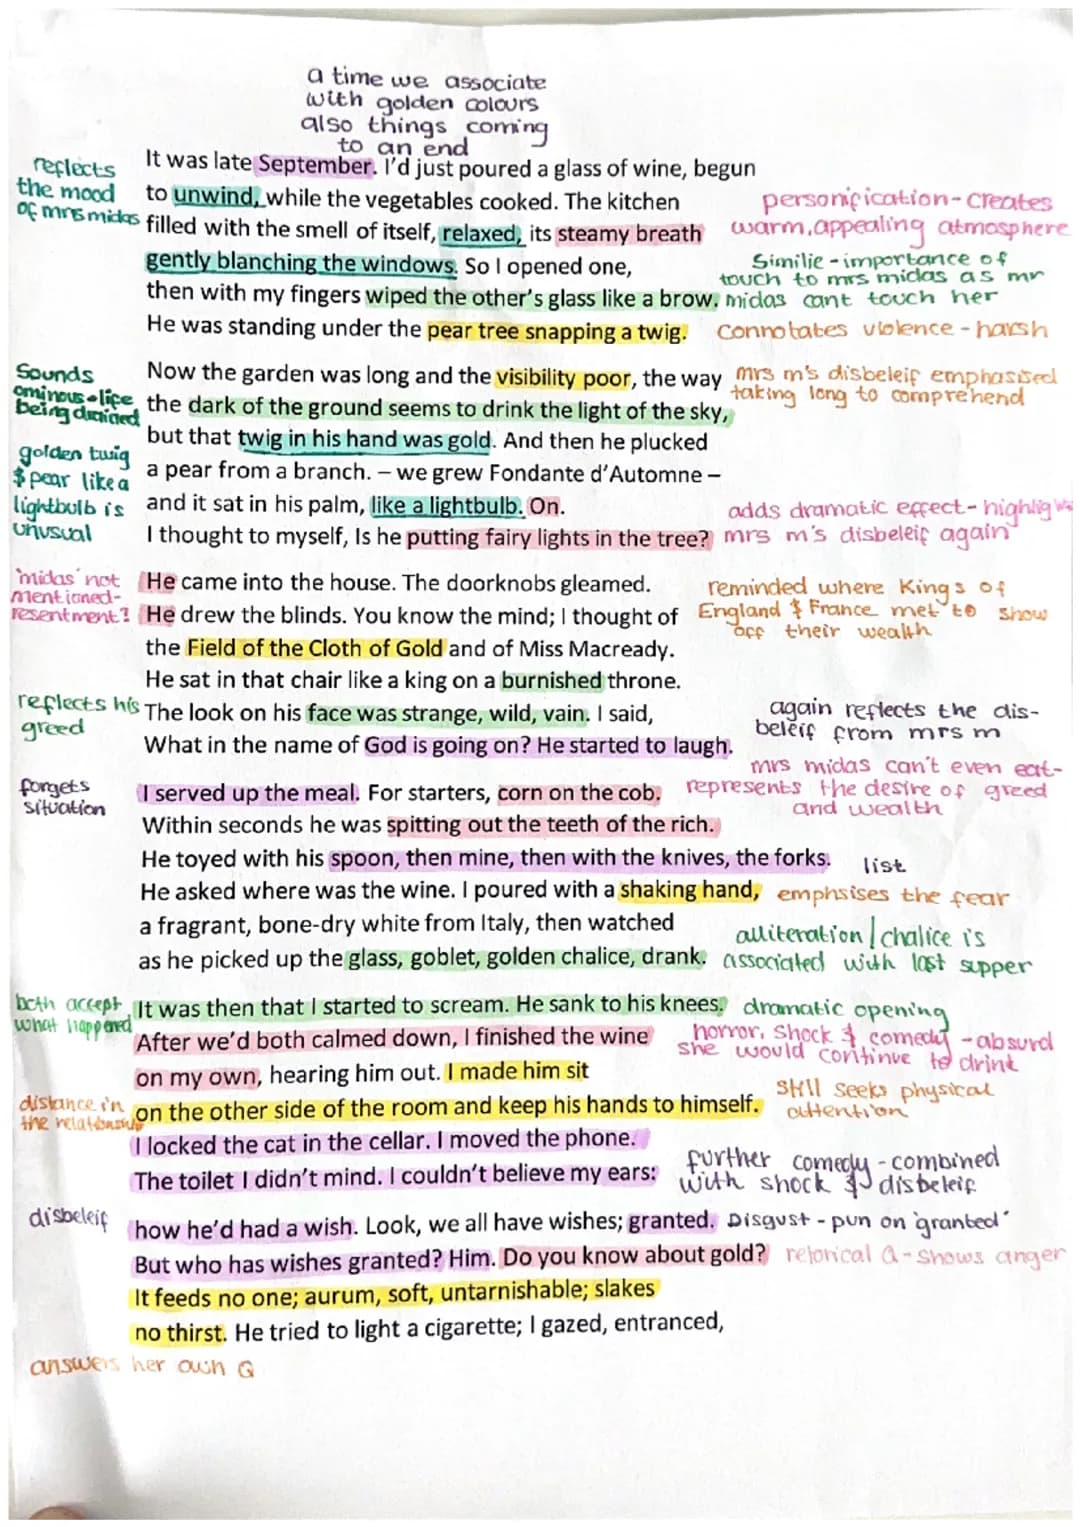 a time we associate
with golden colours
also things coming
to an end
reflects
the mood
of mrs midas
It was late September. I'd just poured a glass of wine, begun
to unwind, while the vegetables cooked. The kitchen
filled with the smell of itself, relaxed, its steamy breath
gently blanching the windows. So I opened one,
then with my fingers wiped the other's glass like a brow.
He was standing under the pear tree snapping a twig.
personification - creates
warm, appealing atmosphere
Similie - importance of
touch to mrs midas as mr
midas cant touch her
connotates violence - harsh
Sounds
ominous - life
being drained
golden twig
& pear like a
lightbulb is
unusual
Now the garden was long and the visibility poor, the way
the dark of the ground seems to drink the light of the sky,
but that twig in his hand was gold. And then he plucked
a pear from a branch. – we grew Fondante d'Automne –
and it sat in his palm, like a lightbulb. On.
I thought to myself, Is he putting fairy lights in the tree?
mrs m's disbeleif emphasised
taking long to comprehend
adds dramatic effect - highlig
mrs m's disbeleif again
'midas' not
mentioned-
resentment?
He came into the house. The doorknobs gleamed.
He drew the blinds. You know the mind; I thought of
the Field of the Cloth of Gold and of Miss Macready.
He sat in that chair like a king on a burnished throne.
The look on his face was strange, wild, vain. I said,
What in the name of God is going on? He started to laugh.
reminded where Kings of
England & France met to show
off their wealth
reflects his
greed
again reflects the dis-
beleif from mrs m
forgets
situation
I served up the meal. For starters, corn on the cob.
Within seconds he was spitting out the teeth of the rich.
He toyed with his spoon, then mine, then with the knives, the forks.
He asked where was the wine. I poured with a shaking hand,
a fragrant, bone-dry white from Italy, then watched
as he picked up the glass, goblet, golden chalice, drank.
mrs midas can't even eat-
represents the desire of greed
and wealth
list
emphsises the fear
alliteration / chalice is
associated with last supper
both accept
what happened
It was then that I started to scream. He sank to his knees.
After we'd both calmed down, I finished the wine
on my own, hearing him out. I made him sit
on the other side of the room and keep his hands to himself.
I locked the cat in the cellar. I moved the phone.
The toilet I didn't mind. I couldn't believe my ears:
dramatic opening
horror, shock & comedy - absurd
she would continue to drink
distance in
the relationship
still seeks physical
attention
further comedy - combined
with shock & disbeleif
disbeleif
how he'd had a wish. Look, we all have wishes; granted.
But who has wishes granted? Him. Do you know about gold?
It feeds no one; aurum, soft, untarnishable; slakes
no thirst. He tried to light a cigarette; I gazed, entranced,
Disgust - pun on 'granted'
retorical Q - shows anger
answers her own Q